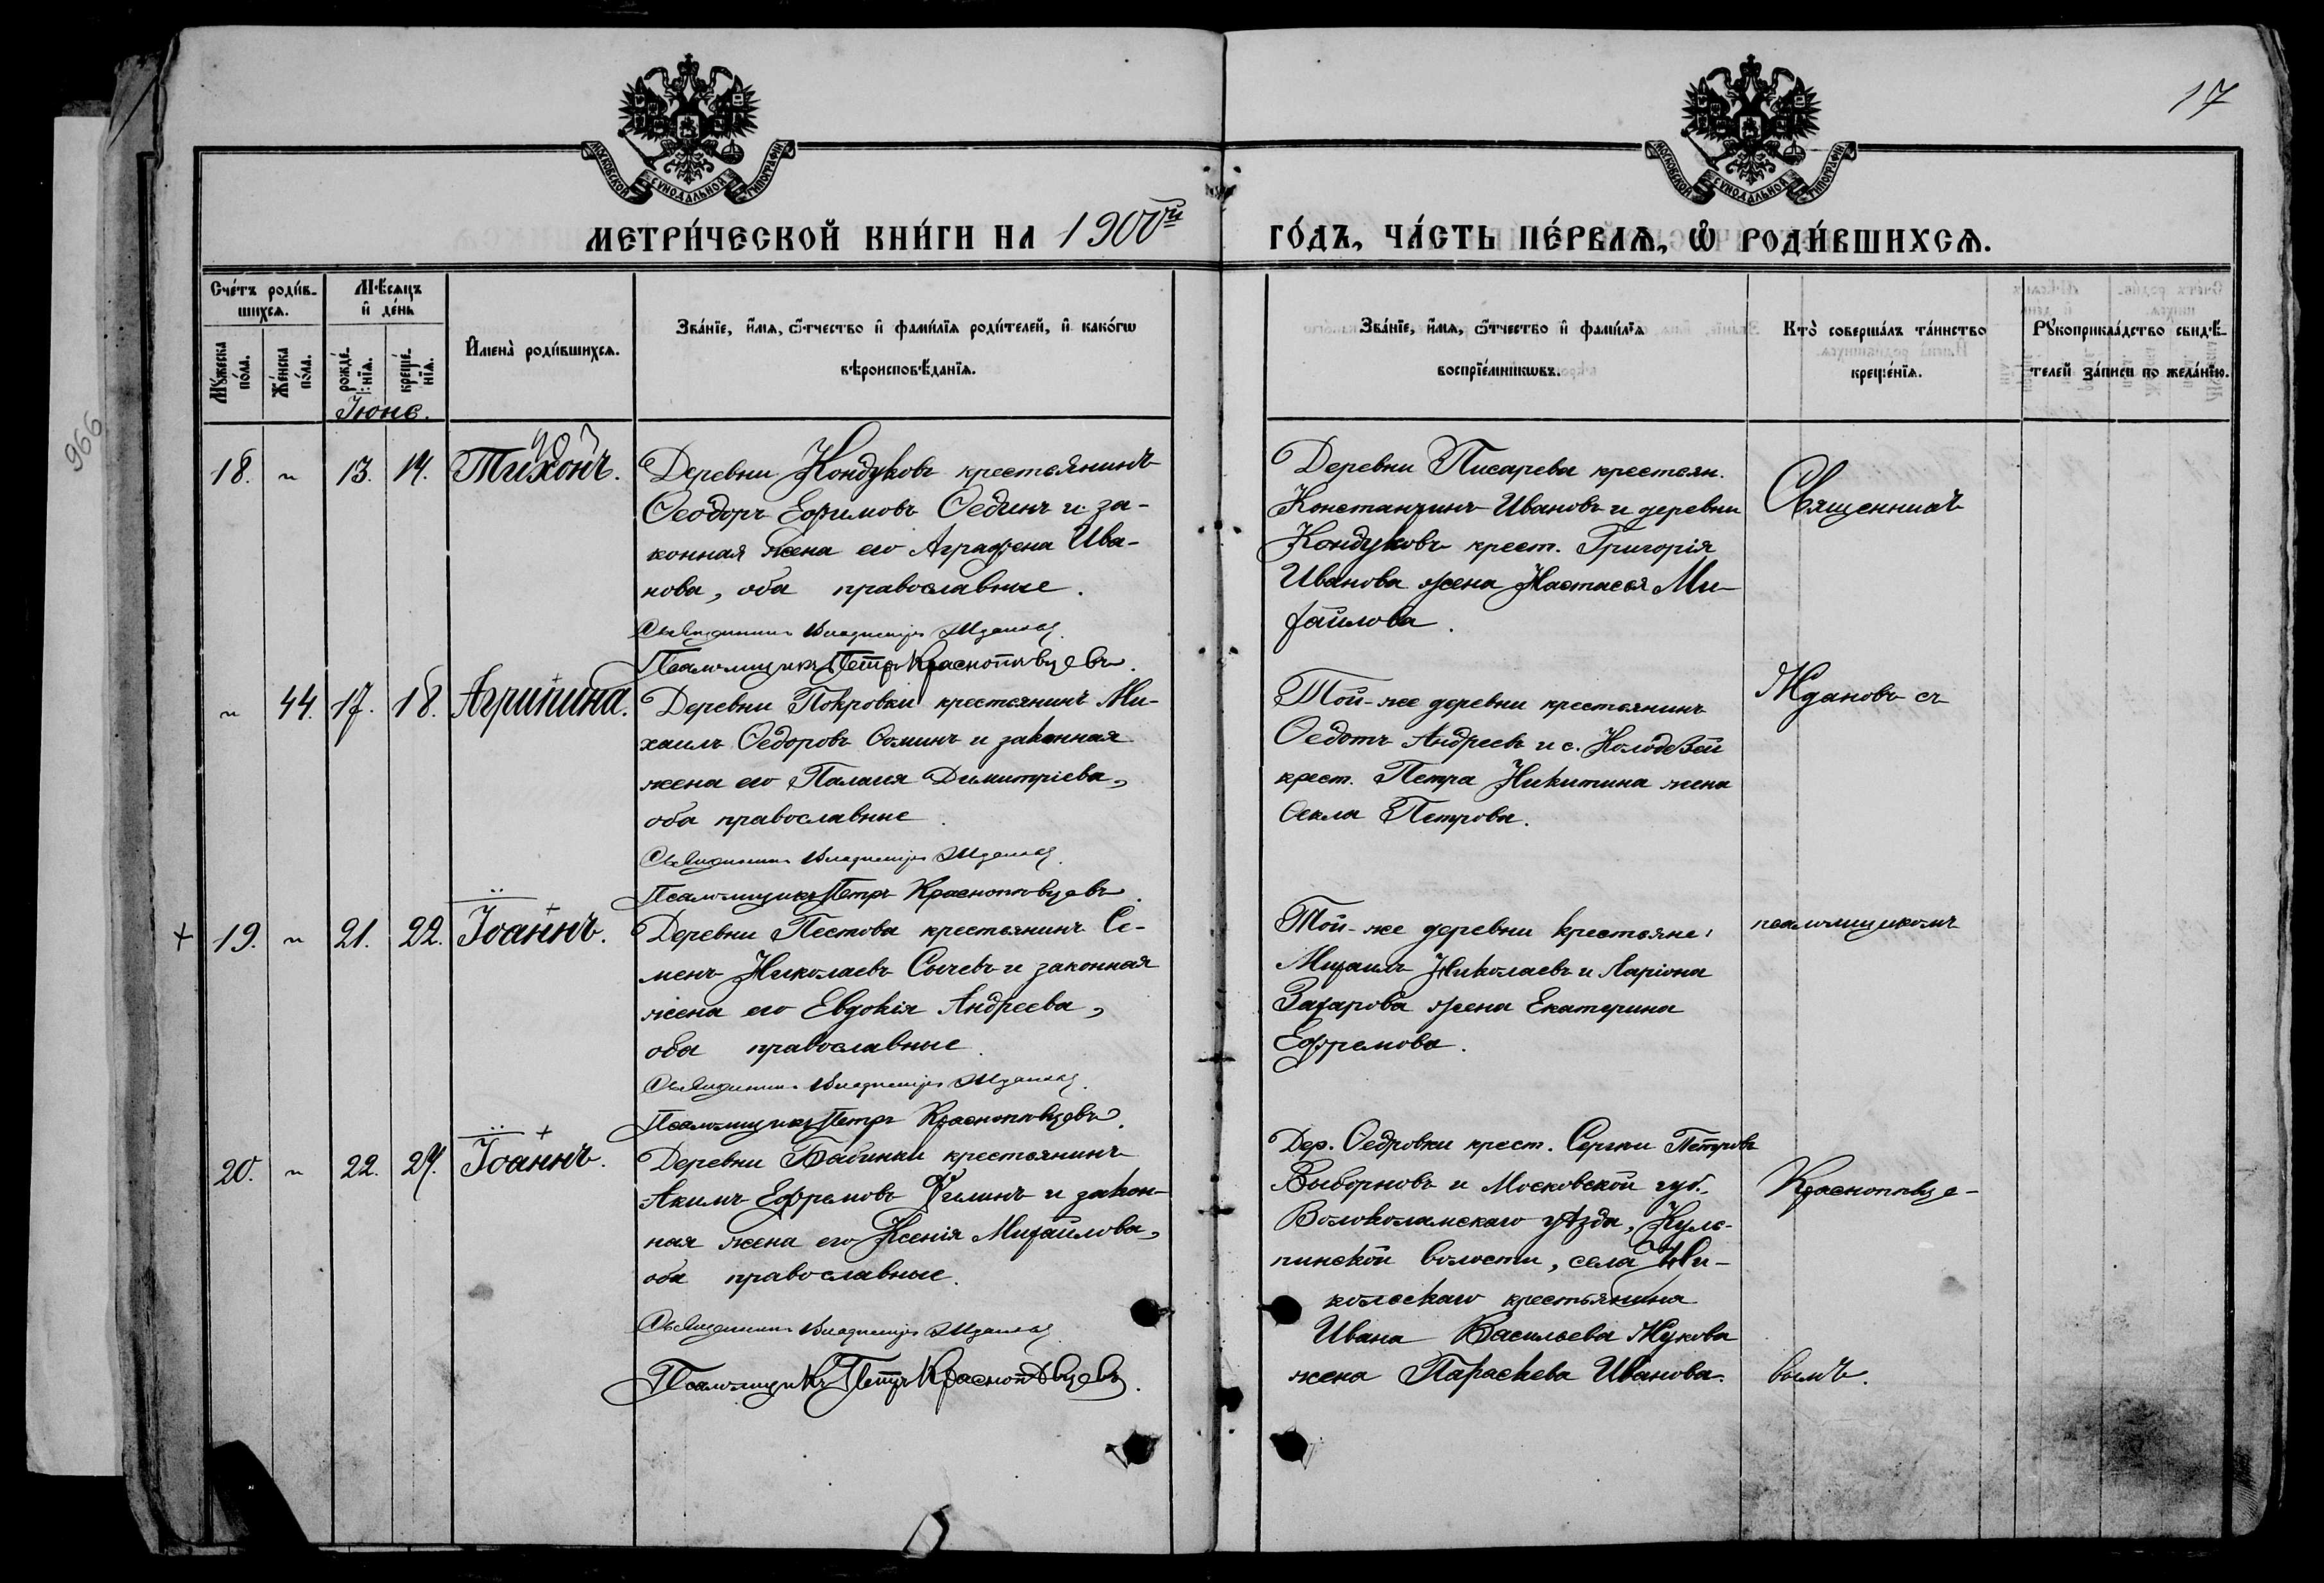 17
966
МОСКОВСКОЙ СѴНОДАЛЬНОЙ ТИПОГРАФІИ
МОСКОВСКОЙ СѴНОДАЛЬНОЙ ТИПОГРАФІИ
МЕТРИ́ЧЕСКОЙ КНИ́ГИ НА 1900й ГО́ДЪ, ЧА́СТЬ ПЕ́РВАѦ, Ѽ РОДИ́ВШИХСѦ.
Сче́тъ роди́в-
шихсѧ.
Мꙋ́жеска по́ла.
Же́нска по́ла.
Мѣ́сѧцъ и҆ де́нь
рожде́-нїѧ.
креще́-нїѧ.
И҆мена̀ роди́вшихсѧ.
Зва́нїе, и҆́мѧ, ѻ҆́тчество и҆ фами́лїѧ роди́телей, и҆ како́гѡ
вѣроисповѣ́данїѧ.
Зва́нїе, и҆́мѧ, ѻ҆́тчество и҆ фами́лїѧ
воспрїе́мникѡвъ.
Кто̀ соверша́лъ та́инство
креще́нїѧ.
Рꙋкоприкла́дство свидѣ́-
телей за́писи по жела́нїю.
Іюнь.
18. " 13. 14. Тихонъ.
Деревни Кондуковъ крестьянинъ
Ѳеодоръ Ефимовъ Ѳединъ и за-
конная жена его Аграфена Ива-
нова, оба православные.
Священникъ Владиміръ Ждановъ.
Псаломщикъ Петръ Краснопѣвцевъ.
Деревни Писарева крестьян.
Константинъ Ивановъ и деревни
Кондуковъ крест. Григорія
Иванова жена Настасья Ми-
хайлова.
Священникъ
" 44. 17. 18. Агрипина.
Деревни Покровки крестьянинъ Ми-
хаилъ Ѳедоровъ Ѳоминъ и законная
жена его Палагея Димитріева,
оба православные.
Священникъ Владиміръ Ждановъ.
Псаломщикъ Петръ Краснопѣвцевъ.
Той-же деревни крестьянинъ
Ѳедотъ Андреевъ и с. Колодезей
крест. Петра Никитина жена
Ѳекла Петрова.
Ждановъ съ
+ 19. " 21. 22. Іоаннъ.
Деревни Пестова крестьянинъ Се-
менъ Николаевъ Сычевъ и законная
жена его Евдокія Андреева,
оба православные.
Священникъ Владиміръ Ждановъ.
Псаломщикъ Петръ Краснопѣвцевъ.
Той-же деревни крестьяне:
Михаилъ Николаевъ и Ларіона
Захарова жена Екатерина
Ефремова.
псаломщикомъ
20. " 22. 24. Іоаннъ.
Деревни Бабинки крестьянинъ
Акимъ Ефремовъ Филинъ и закон-
ная жена его Ксенія Михайлова,
оба православные.
Священникъ Владиміръ Ждановъ.
Псаломщикъ Петръ Краснопѣвцевъ.
Дер. Ѳедровки крест. Сергѣи Петровъ
Выборновъ и Московской губ.,
Волоколамскаго уѣзда, Куль-
пинской волости, села Ни-
кольскаго крестьянина
Ивана Васильева Жукова
жена Параскева Иванова.
Краснопѣвце-
вымъ.